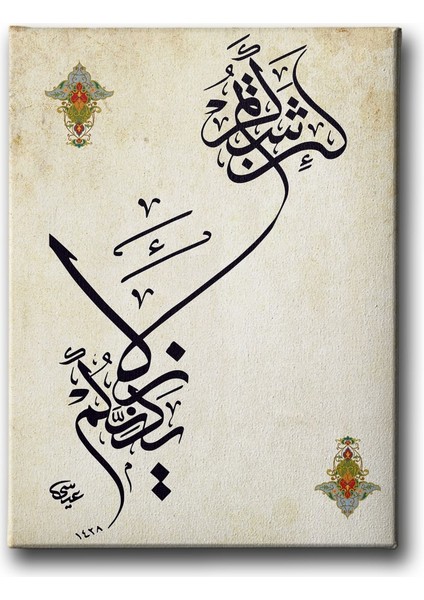 لئن شكرتم
لأزيدنكم
عيسى
١٤٢٨